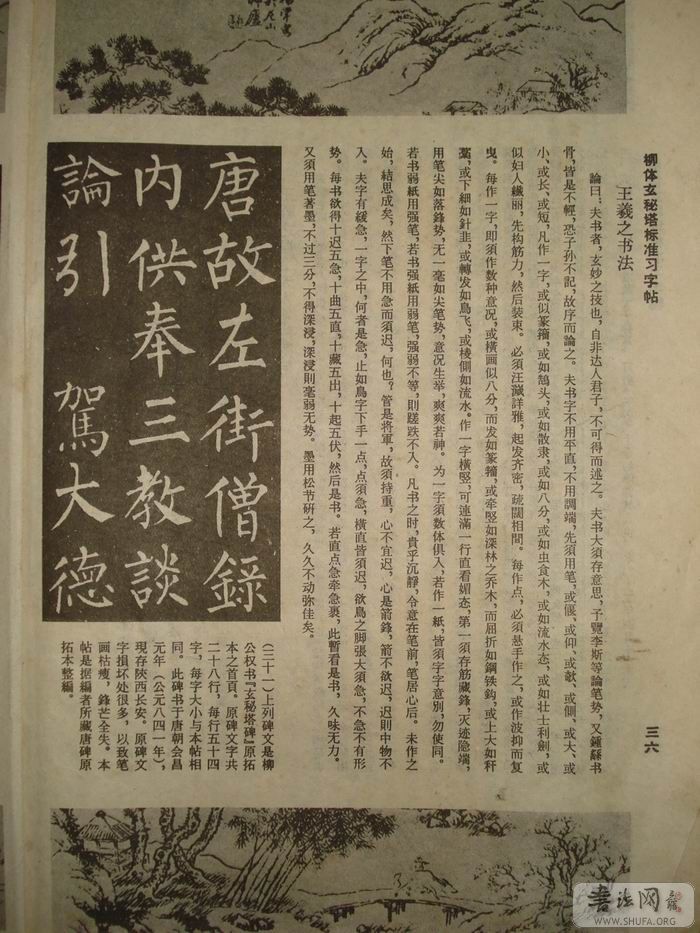 柳体玄秘塔标准习字帖
三六
王羲之书法
論曰：夫书者，玄妙之技也，自非达人君子，不可得而述之。夫书大须存意思，予覽李斯等论笔势，又鍾繇书
骨，皆是不輕，恐子孙不記，故序而論之。夫书字不用平直，不用調端，先須用笔，或偃、或仰、或欹、或側、或大、或
小、或长、或短，凡作一字，或似篆籀，或如鵠头，或如散隶，或如八分，或如虫食木，或如流水态，或如壮士利劍，或
似妇人纖丽，先构筋力，然后装束。必須汪濊詳雅，起发齐密，疏闊相間。每作点，必須悬手作之，或作波抑而复
曳。每作一字，即須作数种意况，或橫画似八分，而发如篆籀，或牵竖如深林之乔木，而屈折如鋼铁鈎，或上大如秆
藁，或下細如針韭，或轉发如鳥飞，或棱側如流水。作一字橫竪，可連滿一行直看媚态，第一須存筋藏鋒，灭迹隐端，
用笔尖如落鋒势，无一毫如尖笔势，意况生举，爽爽若神。为一字須数体俱入，若作一紙，皆須字字意別，勿使同。
若书弱紙用强笔，若书强紙用弱笔，强弱不等，則蹉跌不入。凡书之时，貴乎沉靜，令意在笔前，笔居心后。未作之
始，結思成矣，然下笔不用急而須迟，何也？管是将軍，故須持重，心不宜迟，心是箭鋒，箭不欲迟，迟則中物不
入。夫字有緩急，一字之中，何者是急，止如鳥字下手一点，点須急，橫直皆須迟，欲鳥之脚張大須急，不急不有形
势。每书欲得十迟五急，十曲五直，十藏五出，十起五伏，然后是书。若直点急牵急裹，此暫看是书，久味无力。
又須用笔著墨，不过三分，不得深浸，深浸則毫弱无势。墨用松节研之，久久不动弥佳矣。
唐故左街僧錄
内供奉三教談
論引 駕大德
（三十一）上列碑文是柳
公权书『玄秘塔碑』原拓
本之首頁。原碑文字共
二十八行，每行五十四
字，每字大小与本帖相
同。此碑书于唐朝会昌
元年（公元八四一年），
現存陝西长安。原碑文
字損坏处很多，以致笔
画枯瘦，鋒芒全失。本
帖是据編者所藏唐碑原
拓本整編。
書法网
WWW.SHUFA.ORG